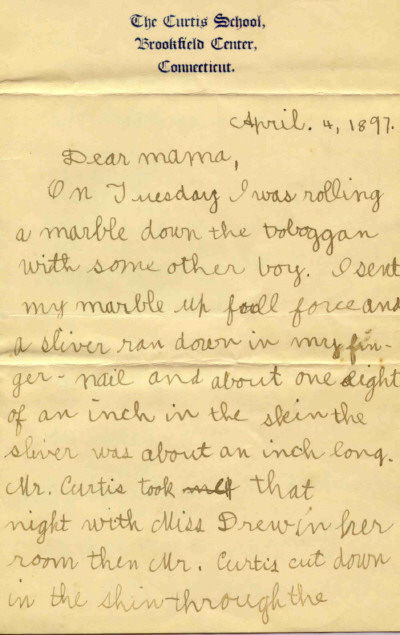 The Curtis School,
Brookfield Center,
Connecticut.
April. 4, 1897.
Dear mama,
On Tuesday I was rolling
a marble down the toboggan
with some other boy. I sent
my marble up full force and
a sliver ran down in my fin-
ger-nail and about one eight
of an inch in the skin the
sliver was about an inch long.
Mr. Curtis took that
night with Miss Drew in her
room then Mr. Curtis cut down
in the skin through the